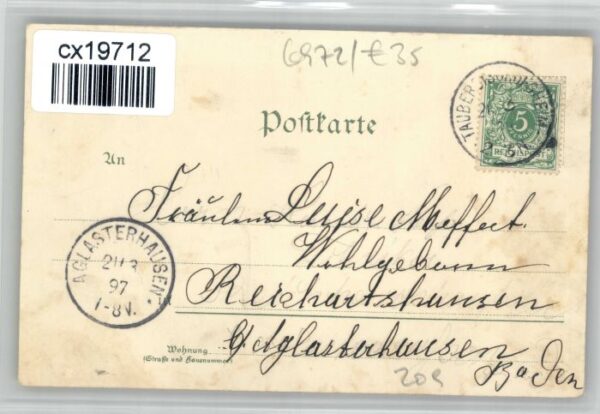 cx19712
6972/€35
Postkarte
5
REICHSPOST
An
Fräulein Luise Meffert.
Wohlgeboren
Reichartshausen
b/Aglasterhausen
Baden
AGLASTERHAUSEN
97
7-8V.
Wohnung
(Straße und Hausnummer)